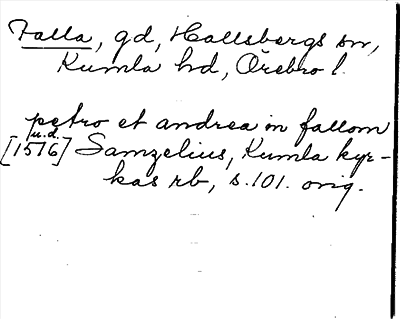 Falla, gd, Hallsbergs sn,
Kumla hd, Örebro l.
petro et andrea in fallom
u.d.
[1516] Samzelius, Kumla kyr-
kas rb, s. 101. orig.